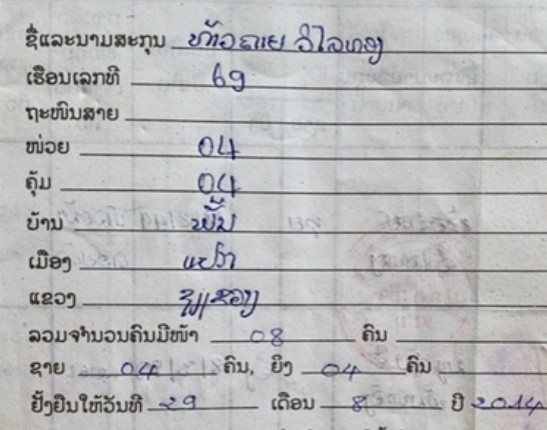 ຊື່ແລະນາມສະກຸນ ທ້າວຄາຍ ວິໄລທອງ
ເຮືອນເລກທີ 69
ຖະໜົນສາຍ
ໜ່ວຍ 04
ຄຸ້ມ 04
ບ້ານ
ເມືອງ ແປກ
ແຂວງ ຊຽງຂວາງ
ລວມຈຳນວນຄົນມີໜ້າ 08 ຄົນ
ຊາຍ 04 ຄົນ, ຍິງ 04 ຄົນ
ຢັ້ງຢືນໃຫ້ວັນທີ 29 ເດືອນ 8 ປີ 2014